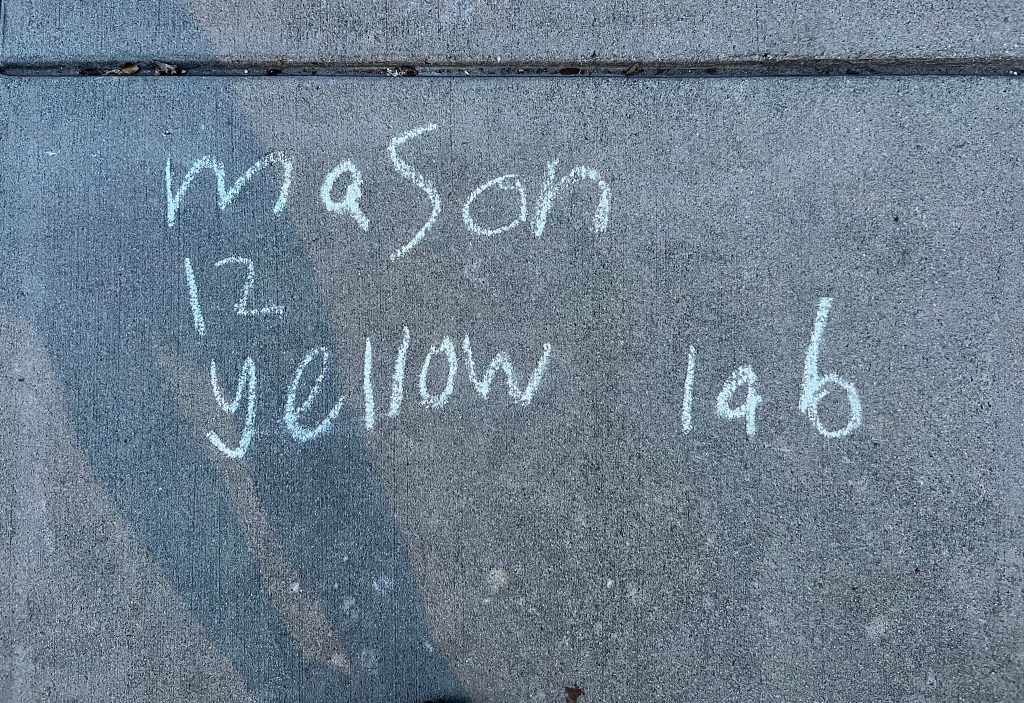 mason
12
yellow lab